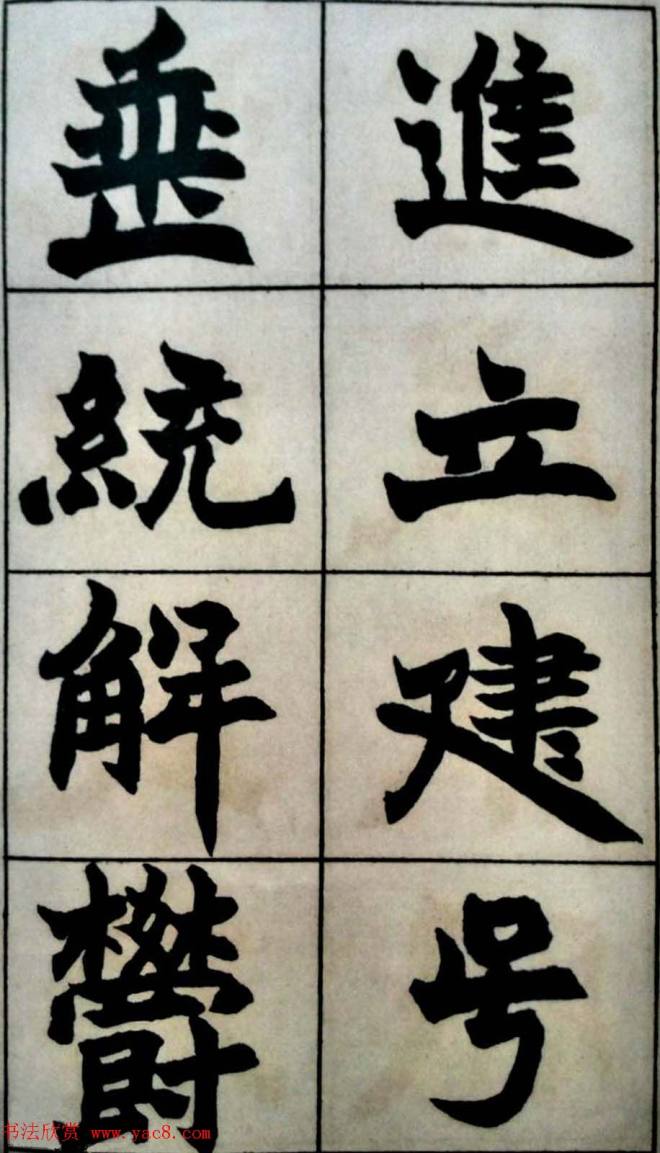 進立建号
垂統解欝
书法欣赏 www.yac8.com